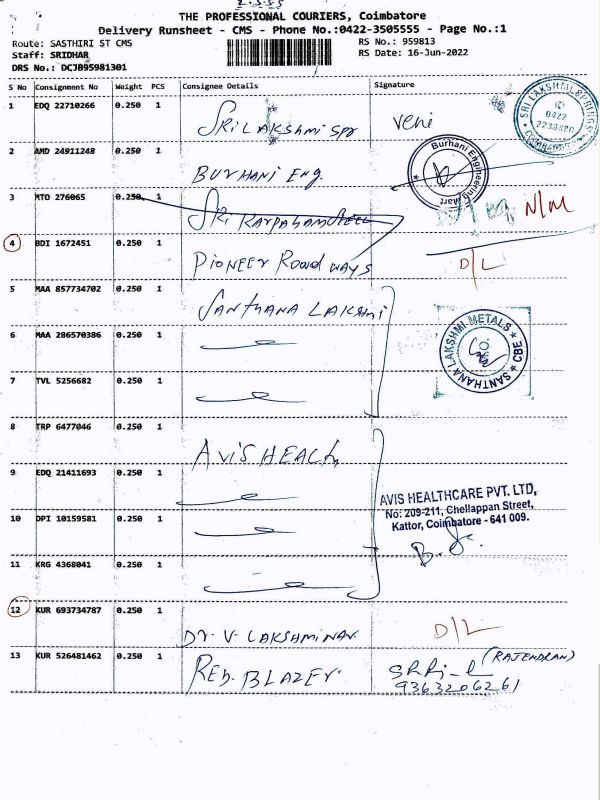 THE PROFESSIONAL COURIERS, Coimbatore
Delivery Runsheet - CMS - Phone No.:0422-3505555 - Page No.:1
Route: SASTHIRI ST CMS
RS No.: 959813
Staff: SRIDHAR
RS Date: 16-Jun-2022
DRS No.: DCJB95981301
S No Consignment No Weight PCS Consignee Details Signature
1 EDQ 22710266 0.250 1 SRI LAKSHMI SPR veni
SRI LAKSHMI SPRINGS
0422
COIMBATORE
2 AMD 24911248 0.250 1 BURHANI ENG.
Burhani Engineering Mart
3 MTO 276065 0.250 1 SRI KARPAGAM STEEL N/M
4 BDI 1672451 0.250 1 PIONEER Road WAYS D/L
5 MAA 857734702 0.250 1 SANTHANA LAKSHMI
6 MAA 286570386 0.250 1
SANTHANA LAKSHMI METALS CBE
7 TVL 5256682 0.250 1
8 TRP 6477046 0.250 1 AVIS HEALTH
9 EDQ 21411693 0.250 1
AVIS HEALTHCARE PVT. LTD,
No: 209-211, Chellappan Street,
Kattor, Coimbatore - 641 009.
10 DPI 10159581 0.250 1
11 KRG 4368041 0.250 1
12 KUR 693734787 0.250 1 Dr. V. LAKSHMINAR D/L
13 KUR 526481462 0.250 1 RED. BLAZER. (RAJENDRAN)
9363206261